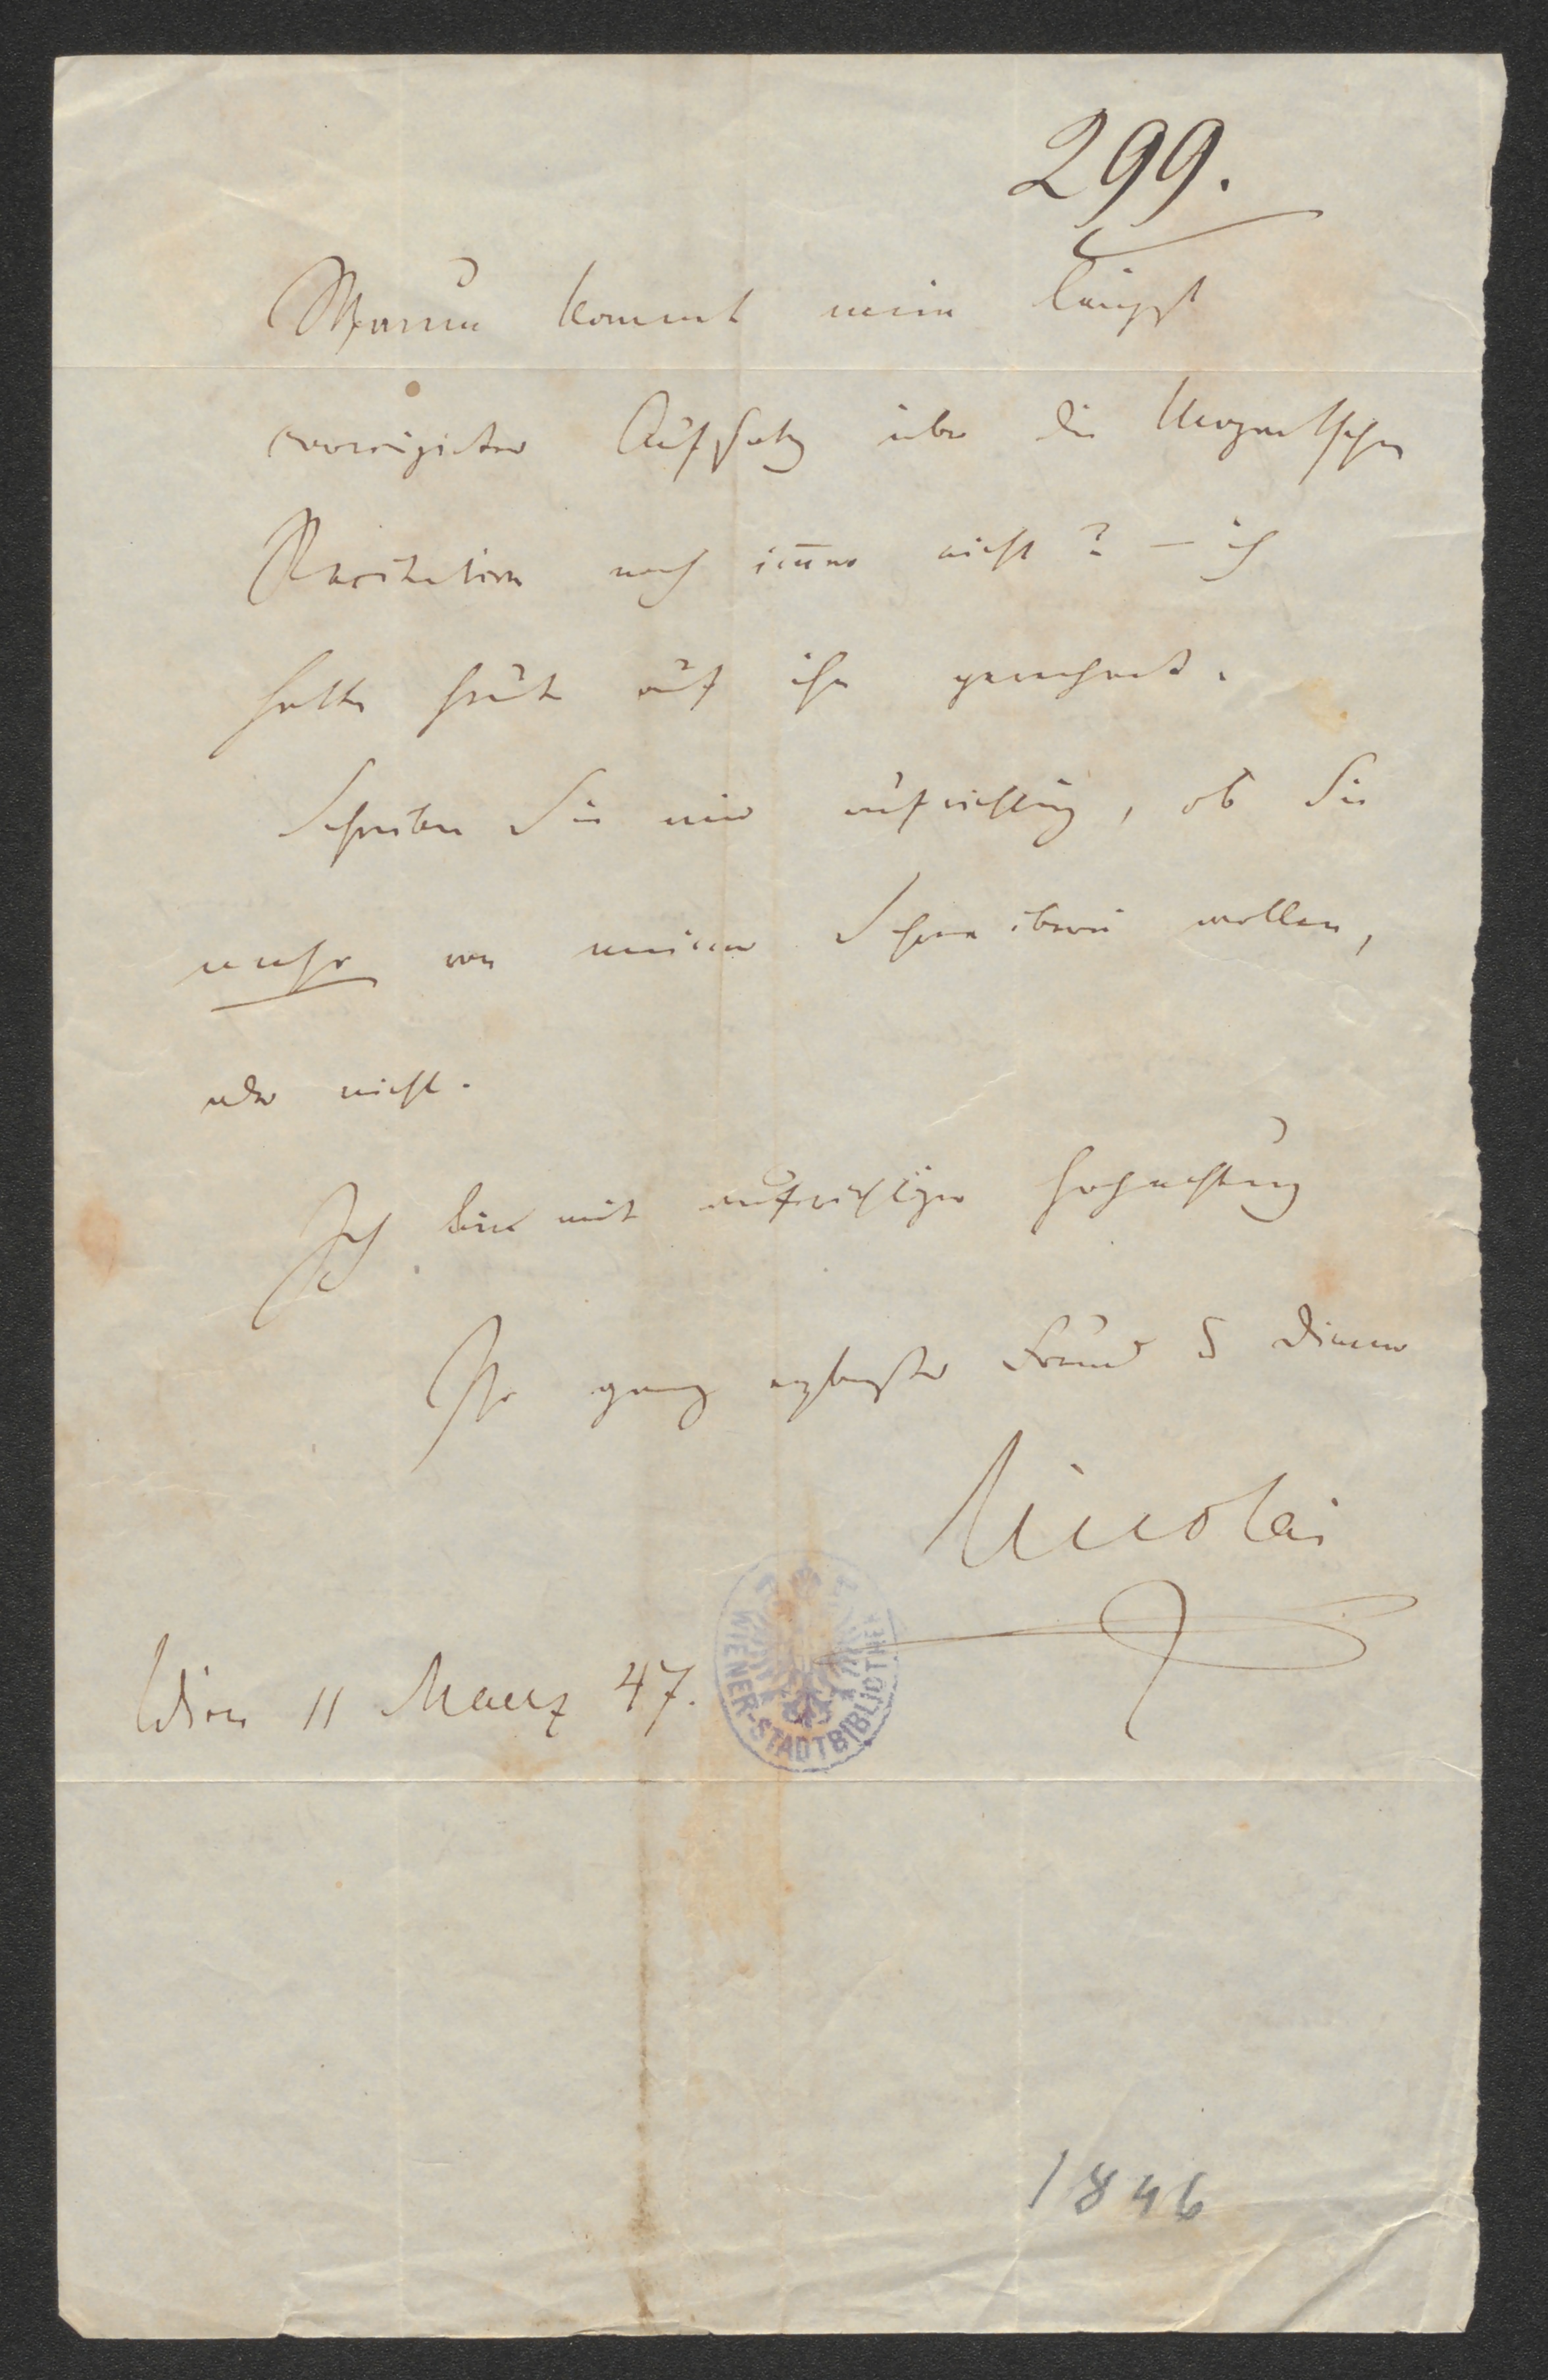 299.
Warum kommt mein längst
corrigirter Aufsatz über die Mozartschen
Recitative noch im̄er nicht? – ich
hatte heute auf ihn gerechnet.
Schreiben Sie mir aufrichtig, ob Sie
mehr von meiner Schreiberei wollen,
oder nicht.
Ich bin mit aufrichtiger Hochachtung
Ihr ganz ergebenster Freund & Diener
Nicolai
Wien 11 Maerz 47.
WIENER-STADTBIBLIOTHEK
1846